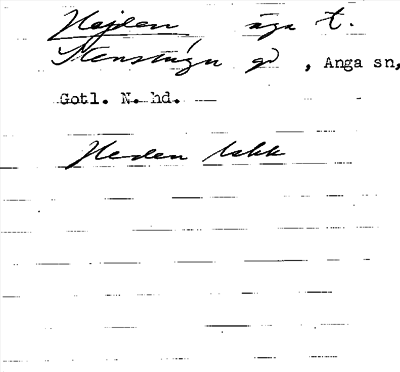 Hejden äga t.
Stenstugu gd, Anga sn,
Gotl. N. hd.
Heden lakk